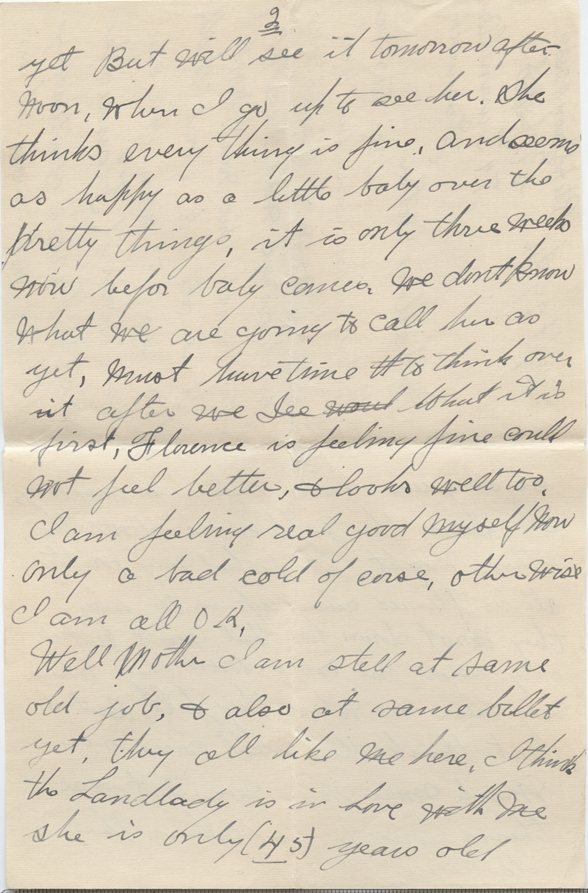 2
yet But will see it tomorrow after
Noon, When I go up to see her. She
thinks every thing is fine, and seems
as happy as a little baby over the
Pretty things, it is only three weeks
now befor baby comes. We dont know
What we are going to call her as
yet, Must have time to think over
it after we See What it is
first, Florence is feeling fine could
not feel better, & looks well too,
I am feeling real good myself Now
only a bad cold of corse, other wise
I am all OK,
Well Mother I am still at same
old job, & also at same billet
yet, they all like me here, I think
the Landlady is in Love with me
she is only (45) years old